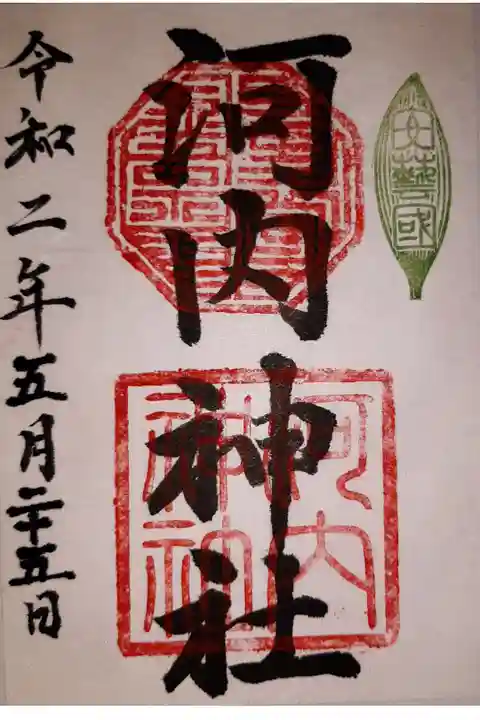 安藝国
河内神社
河内
神社
令和二年五月二十五日